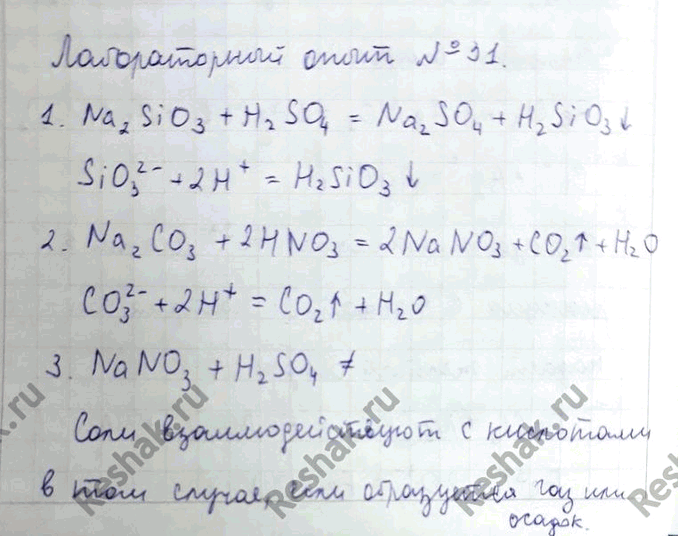 Лабораторный опыт №31.
1. Na₂SiO₃ + H₂SO₄ = Na₂SO₄ + H₂SiO₃↓
SiO₃²⁻ + 2H⁺ = H₂SiO₃↓
2. Na₂CO₃ + 2HNO₃ = 2NaNO₃ + CO₂↑ + H₂O
CO₃²⁻ + 2H⁺ = CO₂↑ + H₂O
3. NaNO₃ + H₂SO₄ ≠
Соли взаимодействуют с кислотами
в том случае, если образуется газ или
осадок.
Reshak.ru
Reshak.ru
Reshak.ru
Reshak.ru